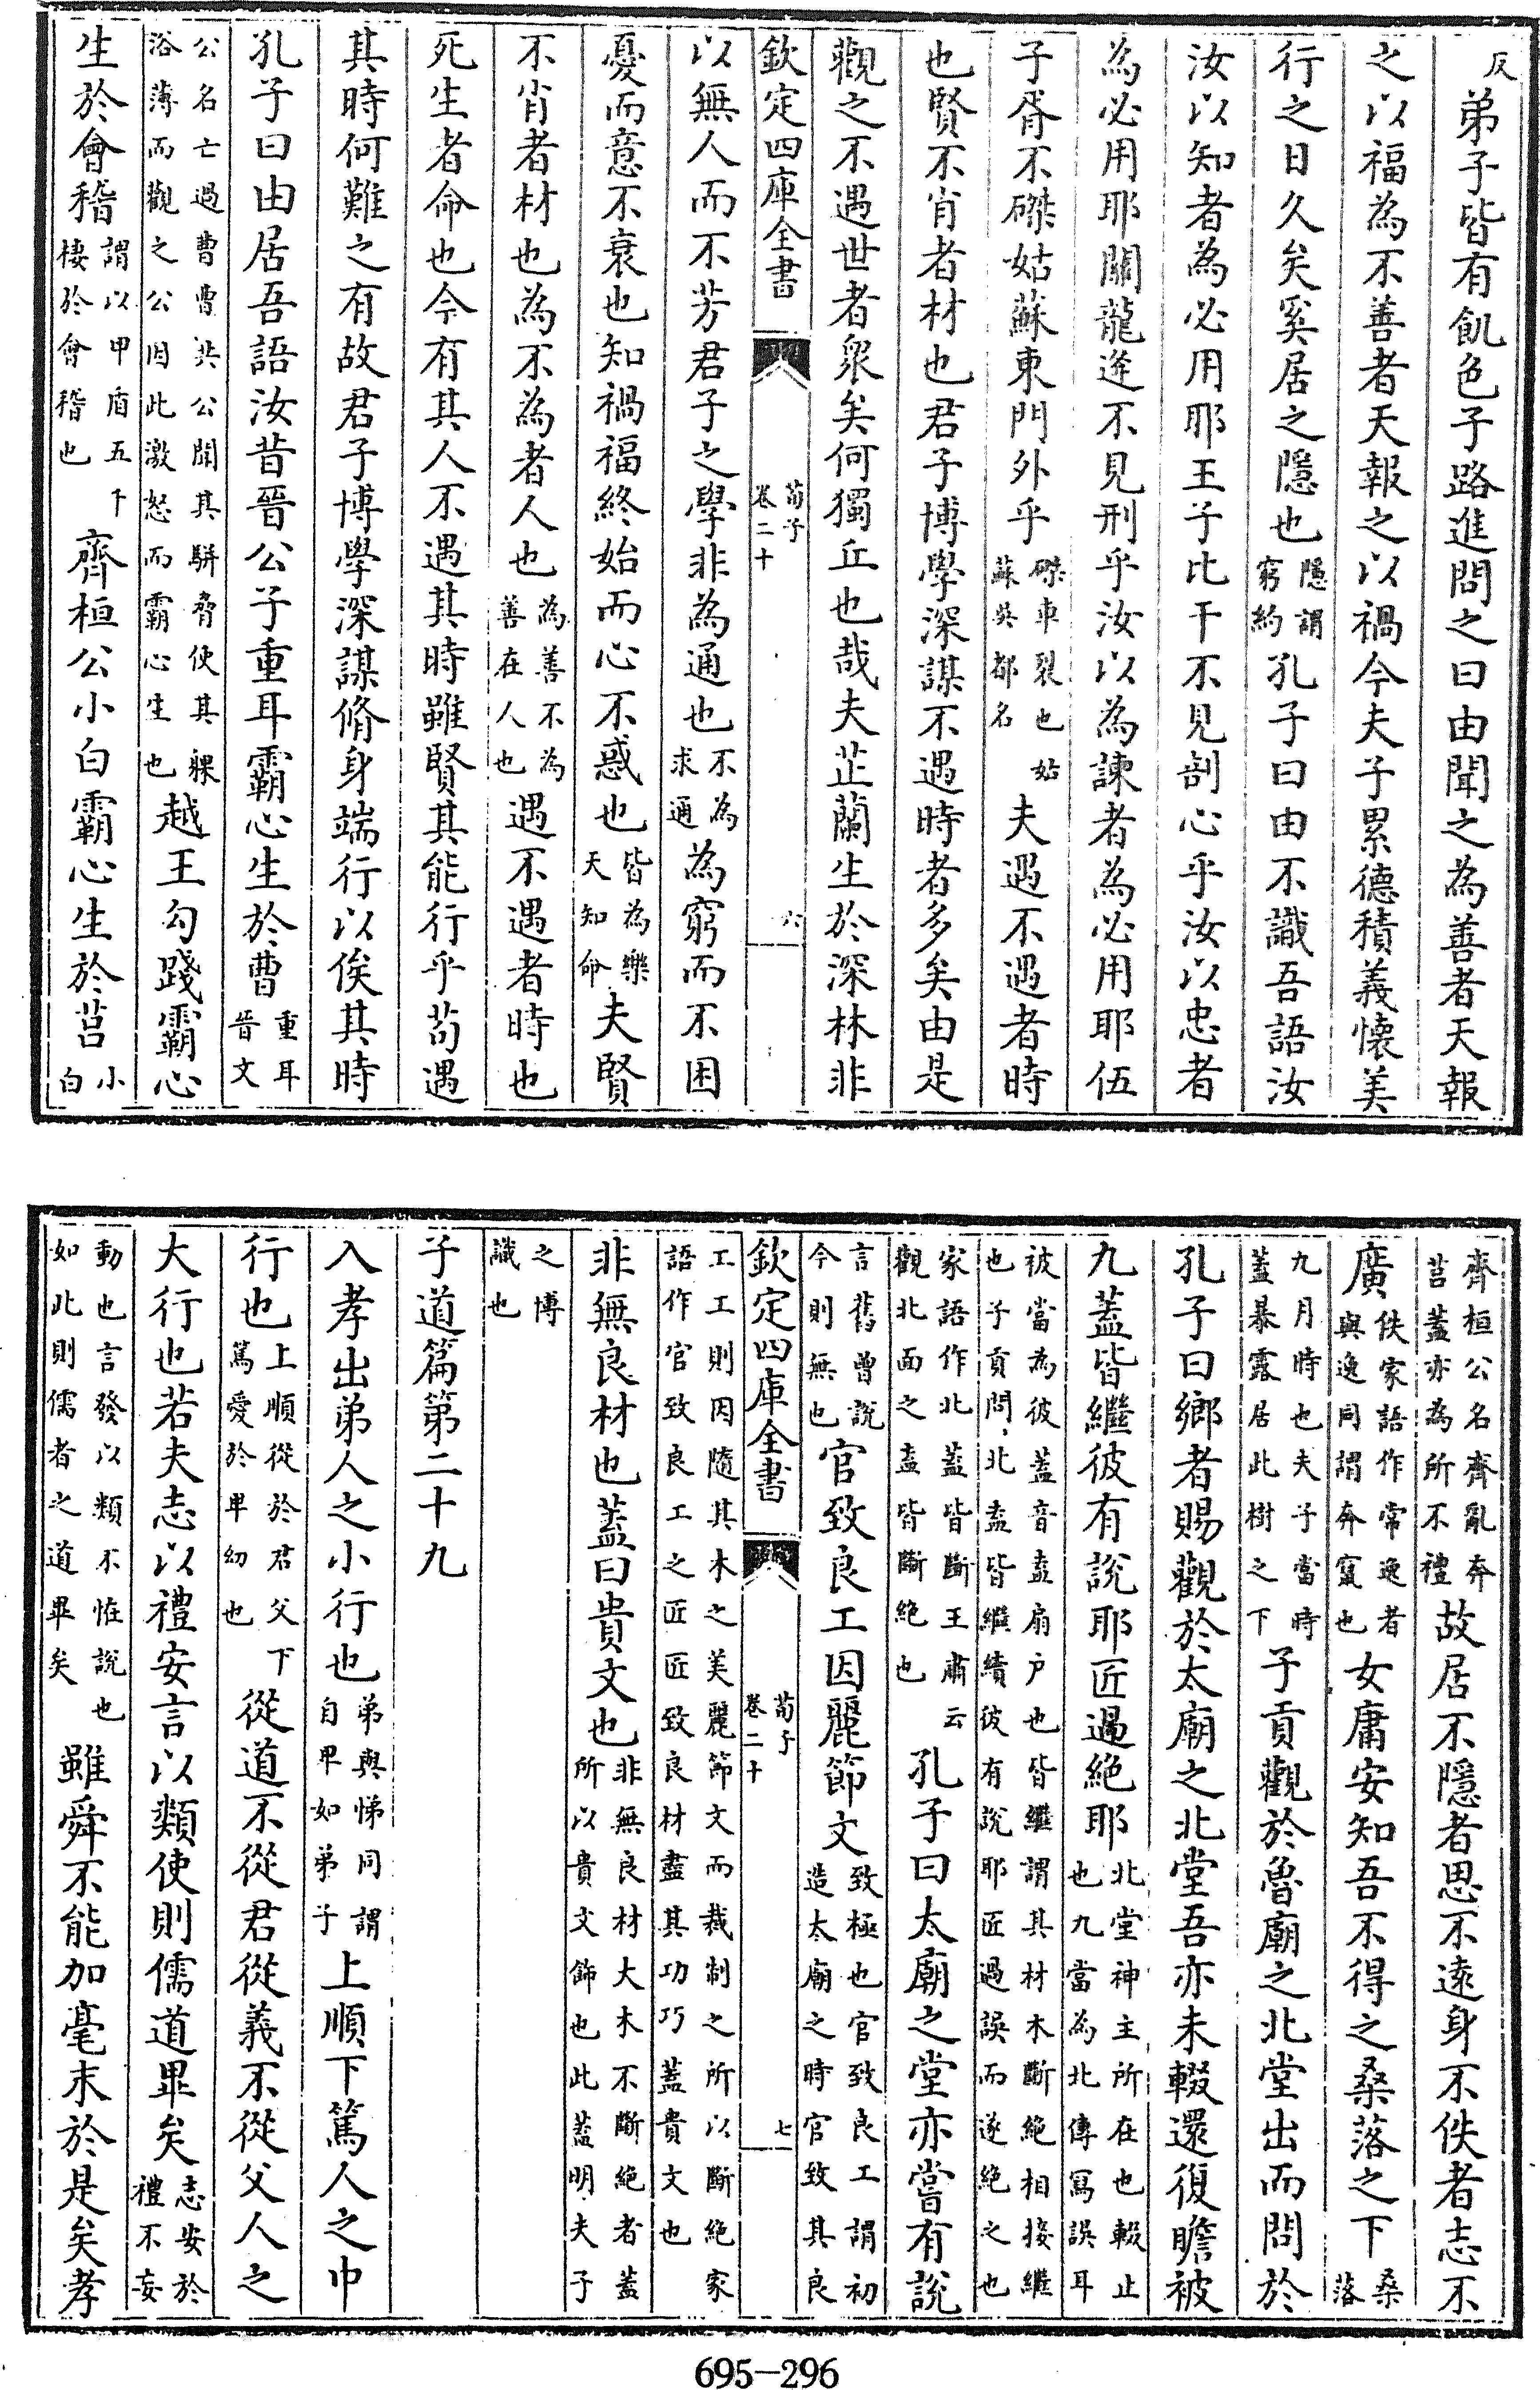 反弟子皆有飢色子路進問之曰由聞之為善者天報
之以福為不善者天報之以禍今夫子累德積義懷美
行之日久矣奚居之隱也隱謂窮約孔子曰由不識吾語汝
汝以知者為必用耶王子比干不見剖心乎汝以忠者
為必用耶關龍逄不見刑乎汝以為諫者為必用耶伍
子胥不磔姑蘇東門外乎磔車裂也姑蘇吳都名夫遇不遇者時
也賢不肖者材也君子博學深謀不遇時者多矣由是
觀之不遇世者衆矣何獨丘也哉夫芷蘭生於深林非
欽定四庫全書 荀子卷二十 六
以無人而不芳君子之學非為通也不為求通為窮而不困
憂而意不衰也知禍福終始而心不惑也皆為樂天知命夫賢
不肖者材也為不為者人也為善不為善在人也遇不遇者時也
死生者命也今有其人不遇其時雖賢其能行乎苟遇
其時何難之有故君子博學深謀脩身端行以俟其時
孔子曰由居吾語汝昔晉公子重耳霸心生於曹重耳晉文
公名亡過曹曹共公聞其駢脅使其裸浴薄而觀之公因此激怒而霸心生也越王勾踐霸心
生於會稽謂以甲盾五千棲於會稽也齊桓公小白霸心生於莒小白
齊桓公名齊亂奔莒蓋亦為所不禮故居不隱者思不遠身不佚者志不
廣佚家語作常逸者與逸同謂奔竄也女庸安知吾不得之桑落之下桑落
九月時也夫子當時蓋暴露居此樹之下子貢觀於魯廟之北堂出而問於
孔子曰鄉者賜觀於太廟之北堂吾亦未輟還復瞻被
九蓋皆繼彼有說耶匠過絕耶北堂神主所在也輟止也九當為北傳寫誤耳
被當為彼蓋音盍扇户也皆繼謂其材木斷絕相接繼也子貢問北盍皆繼續彼有說耶匠過誤而遂絕之也
家語作北蓋皆斷王肅云觀北面之盍皆斷絕也孔子曰太廟之堂亦嘗有說
言舊曾說今則無也官致良工因麗節文致極也官致良工謂初造太廟之時官致其良
欽定四庫全書 荀子卷二十 七
工工則因隨其木之美麗節文而裁制之所以斷絕家語作官致良工之匠匠致良材盡其功巧蓋貴文也
非無良材也蓋曰貴文也非無良材大木不斷絕者蓋所以貴文飾也此蓋明夫子
之博識也
子道篇第二十九
入孝出弟人之小行也弟與悌同謂自卑如弟子上順下篤人之中
行也上順從於君父下篤愛於卑幼也從道不從君從義不從父人之
大行也若夫志以禮安言以類使則儒道畢矣志安於禮不妄
動也言發以類不怪說也如此則儒者之道畢矣雖舜不能加毫末於是矣孝
695-296